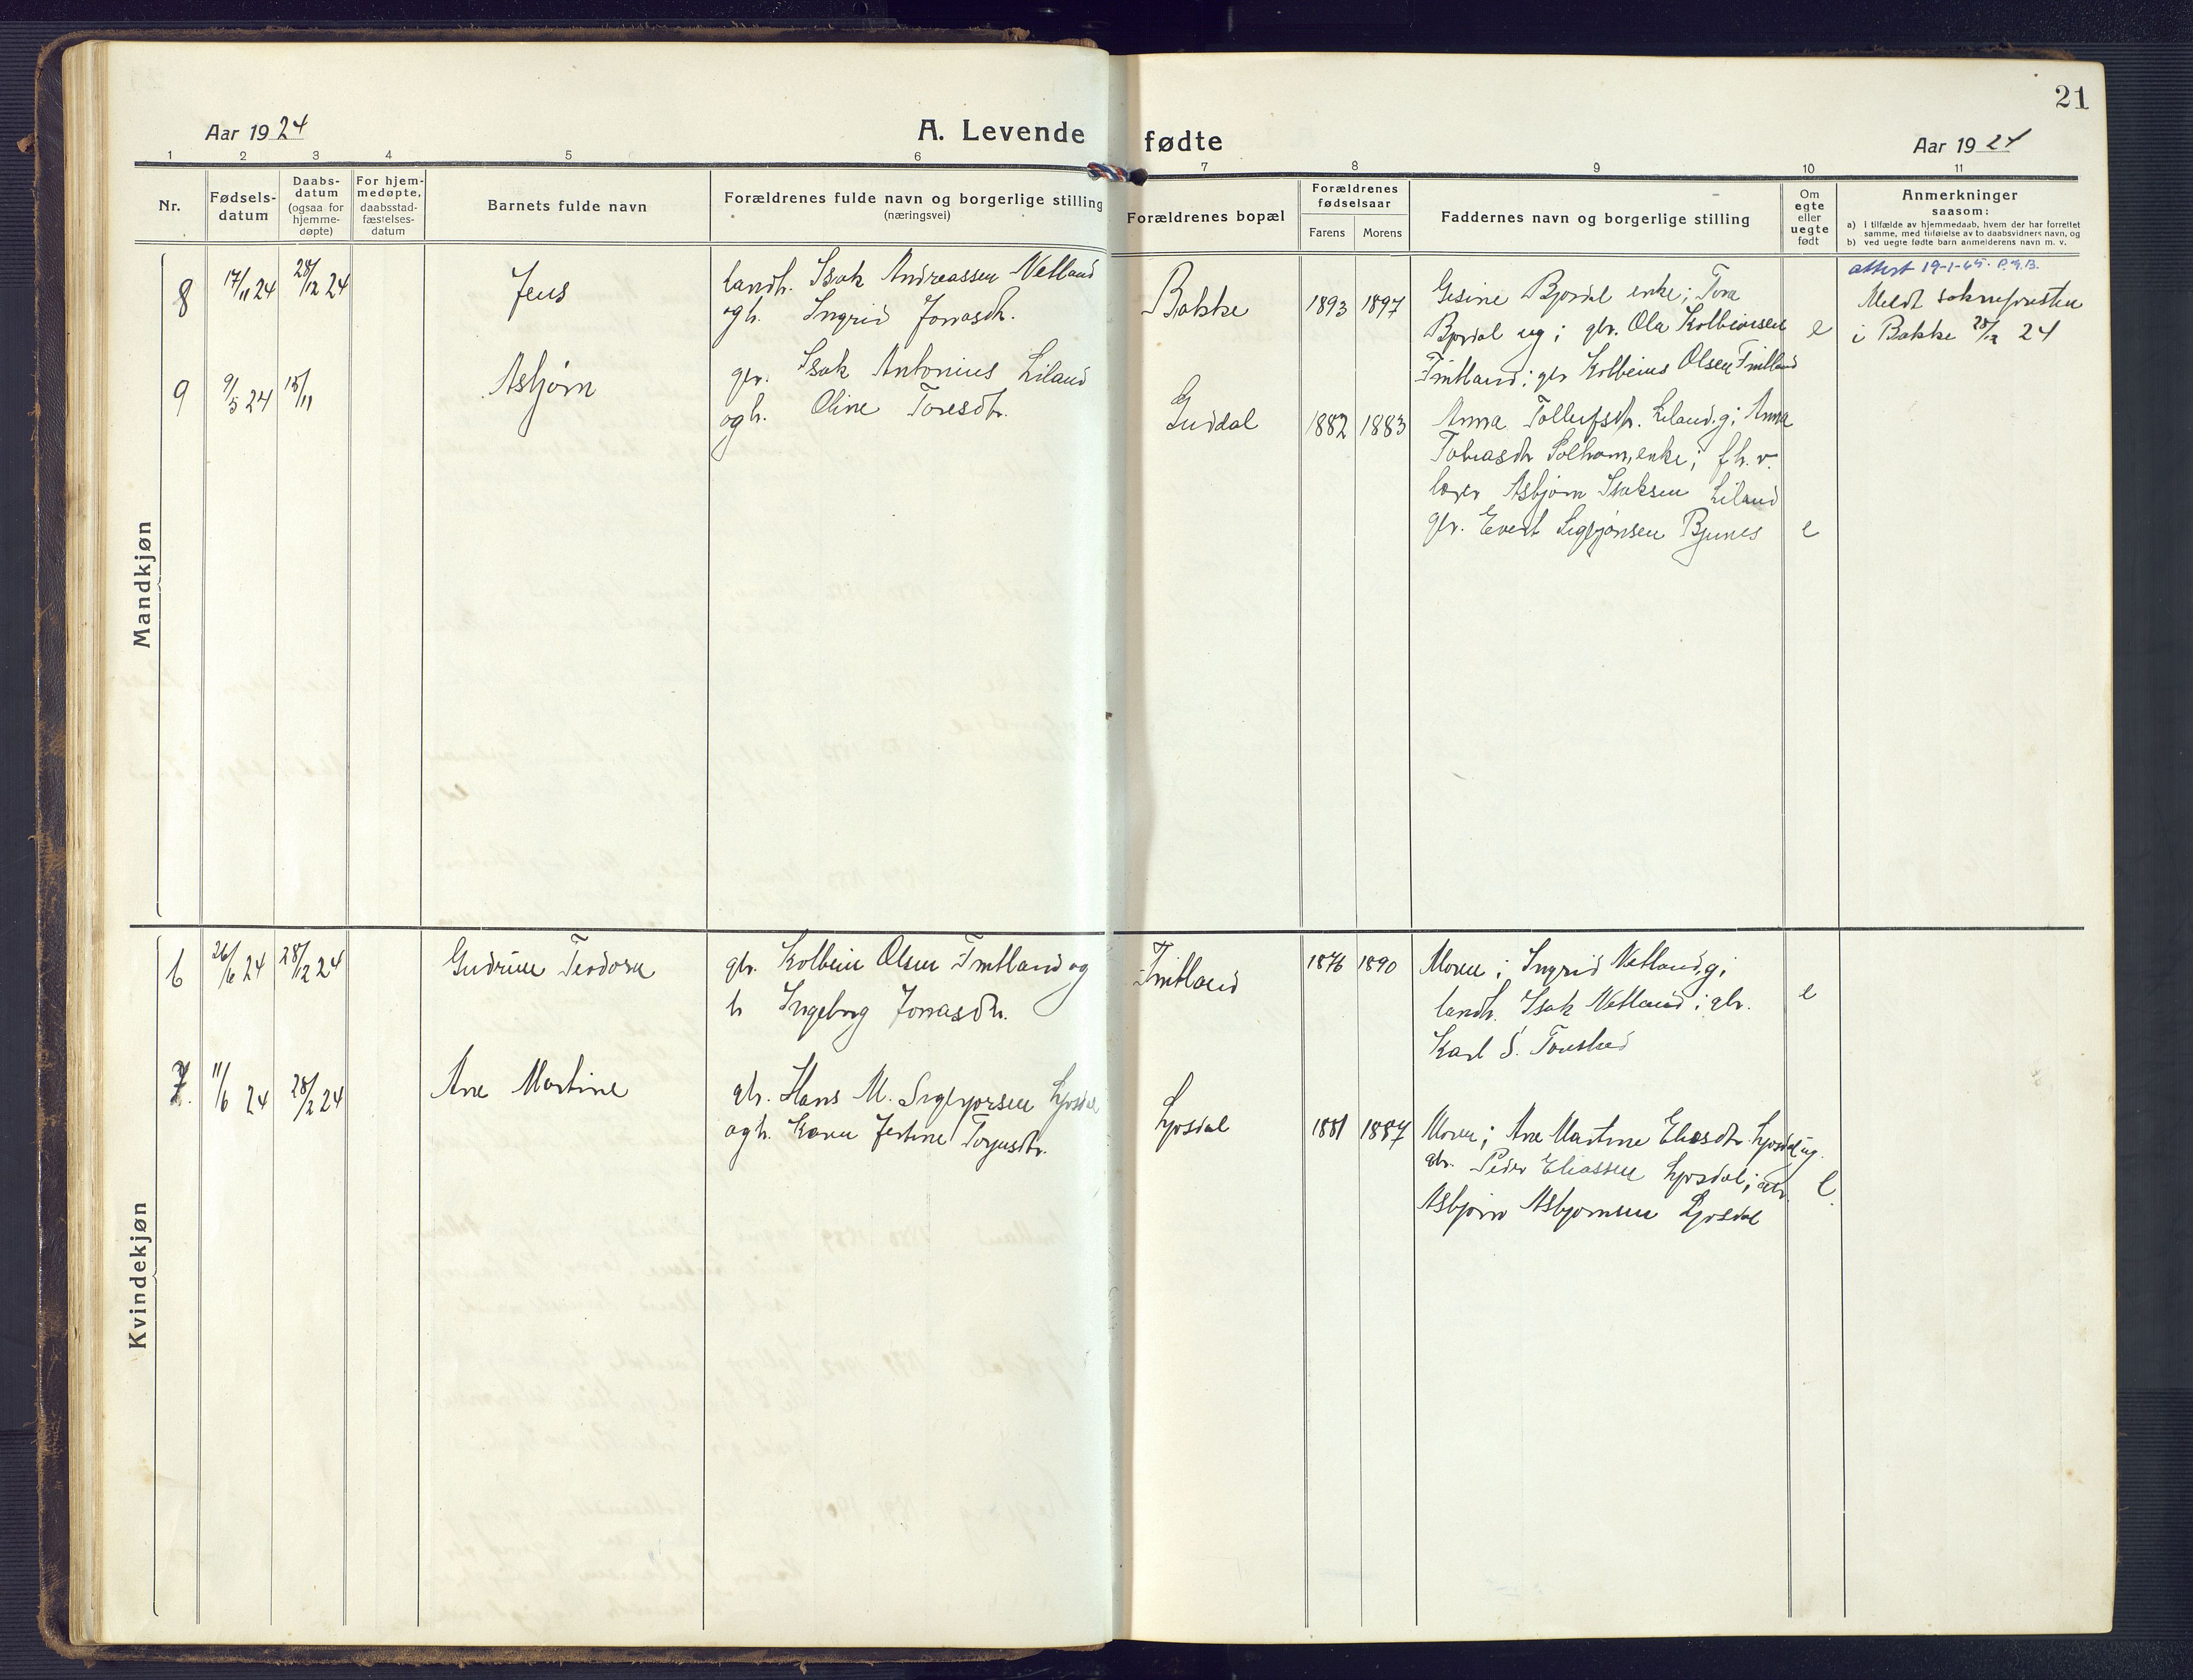 21
Aar 1924
A. Levende fødte
Aar 1924
1 2 3 4 5 6 7 8 9 10 11
Nr.
Fødsels-
datum
Daabs-
datum
(ogsaa for
hjemme-
døpte)
For hjem-
medøpte,
daabsstad-
fæstelses-
datum
Barnets fulde navn
Forældrenes fulde navn og borgerlige stilling
(næringsvei)
Forældrenes bopæl
Forældrenes
fødselsaar
Farens Morens
Faddernes navn og borgerlige stilling
Om
egte
eller
uegte
født
Anmerkninger
saasom:
a) i tilfælde av hjemmedaab, hvem der har forrettet
samme, med tilføielse av to daabsvidners navn, og
b) ved uegte fødte barn anmelderens navn m. v.
Mandkjøn
8 17/11 24 28/12 24 Jens
landh. Isak Andreassen Netland
ogh. Ingrid Jonasdtr.
Bakke 1893 1897
Gesine Bjordal enke; Tora
Bjordal ug; gbr. Ola Kolbeinsen
Fintland; gbr Kolbeins Olsen Fintland
e
attest 19-1-65. P.G.B.
Meldt soknepresten
i Bakke 28/12 24
9 9/5 24 15/11 Asbjørn
gbr. Isak Antonius Liland
ogh. Oline Toresdtr.
Guddal 1882 1883
Anna Tollefsdtr. Liland, g; Anna
Tobiasdtr Solhom, enke; fh. v.
lærer Asbjørn Isaksen Liland
gbr. Evert Sigbjørnsen Bjunes e
Kvindekjøn
6 26/6 24 28/12 24 Gudrun Teodora
gbr. Kolbein Olsen Fintland og
h Ingeborg Jonasdtr.
Fintland 1876 1890
Moren; Ingrid Netland, g;
landh. Isak Netland; gbr.
Karl S.
e
7. 11/6 24 28/12 24 Ane Martine
gbr. Hans M. Sigbjørsen Ljosdal
ogh. Karen Jertine Torjusdtr.
Ljosdal 1881 1887
Moren; Ane Martine Eliasdtr Ljosdal ug.
gbr. Peder Eliassen Ljosdal; gbr.
Asbjørn Asbjørnsen Ljosdal
e